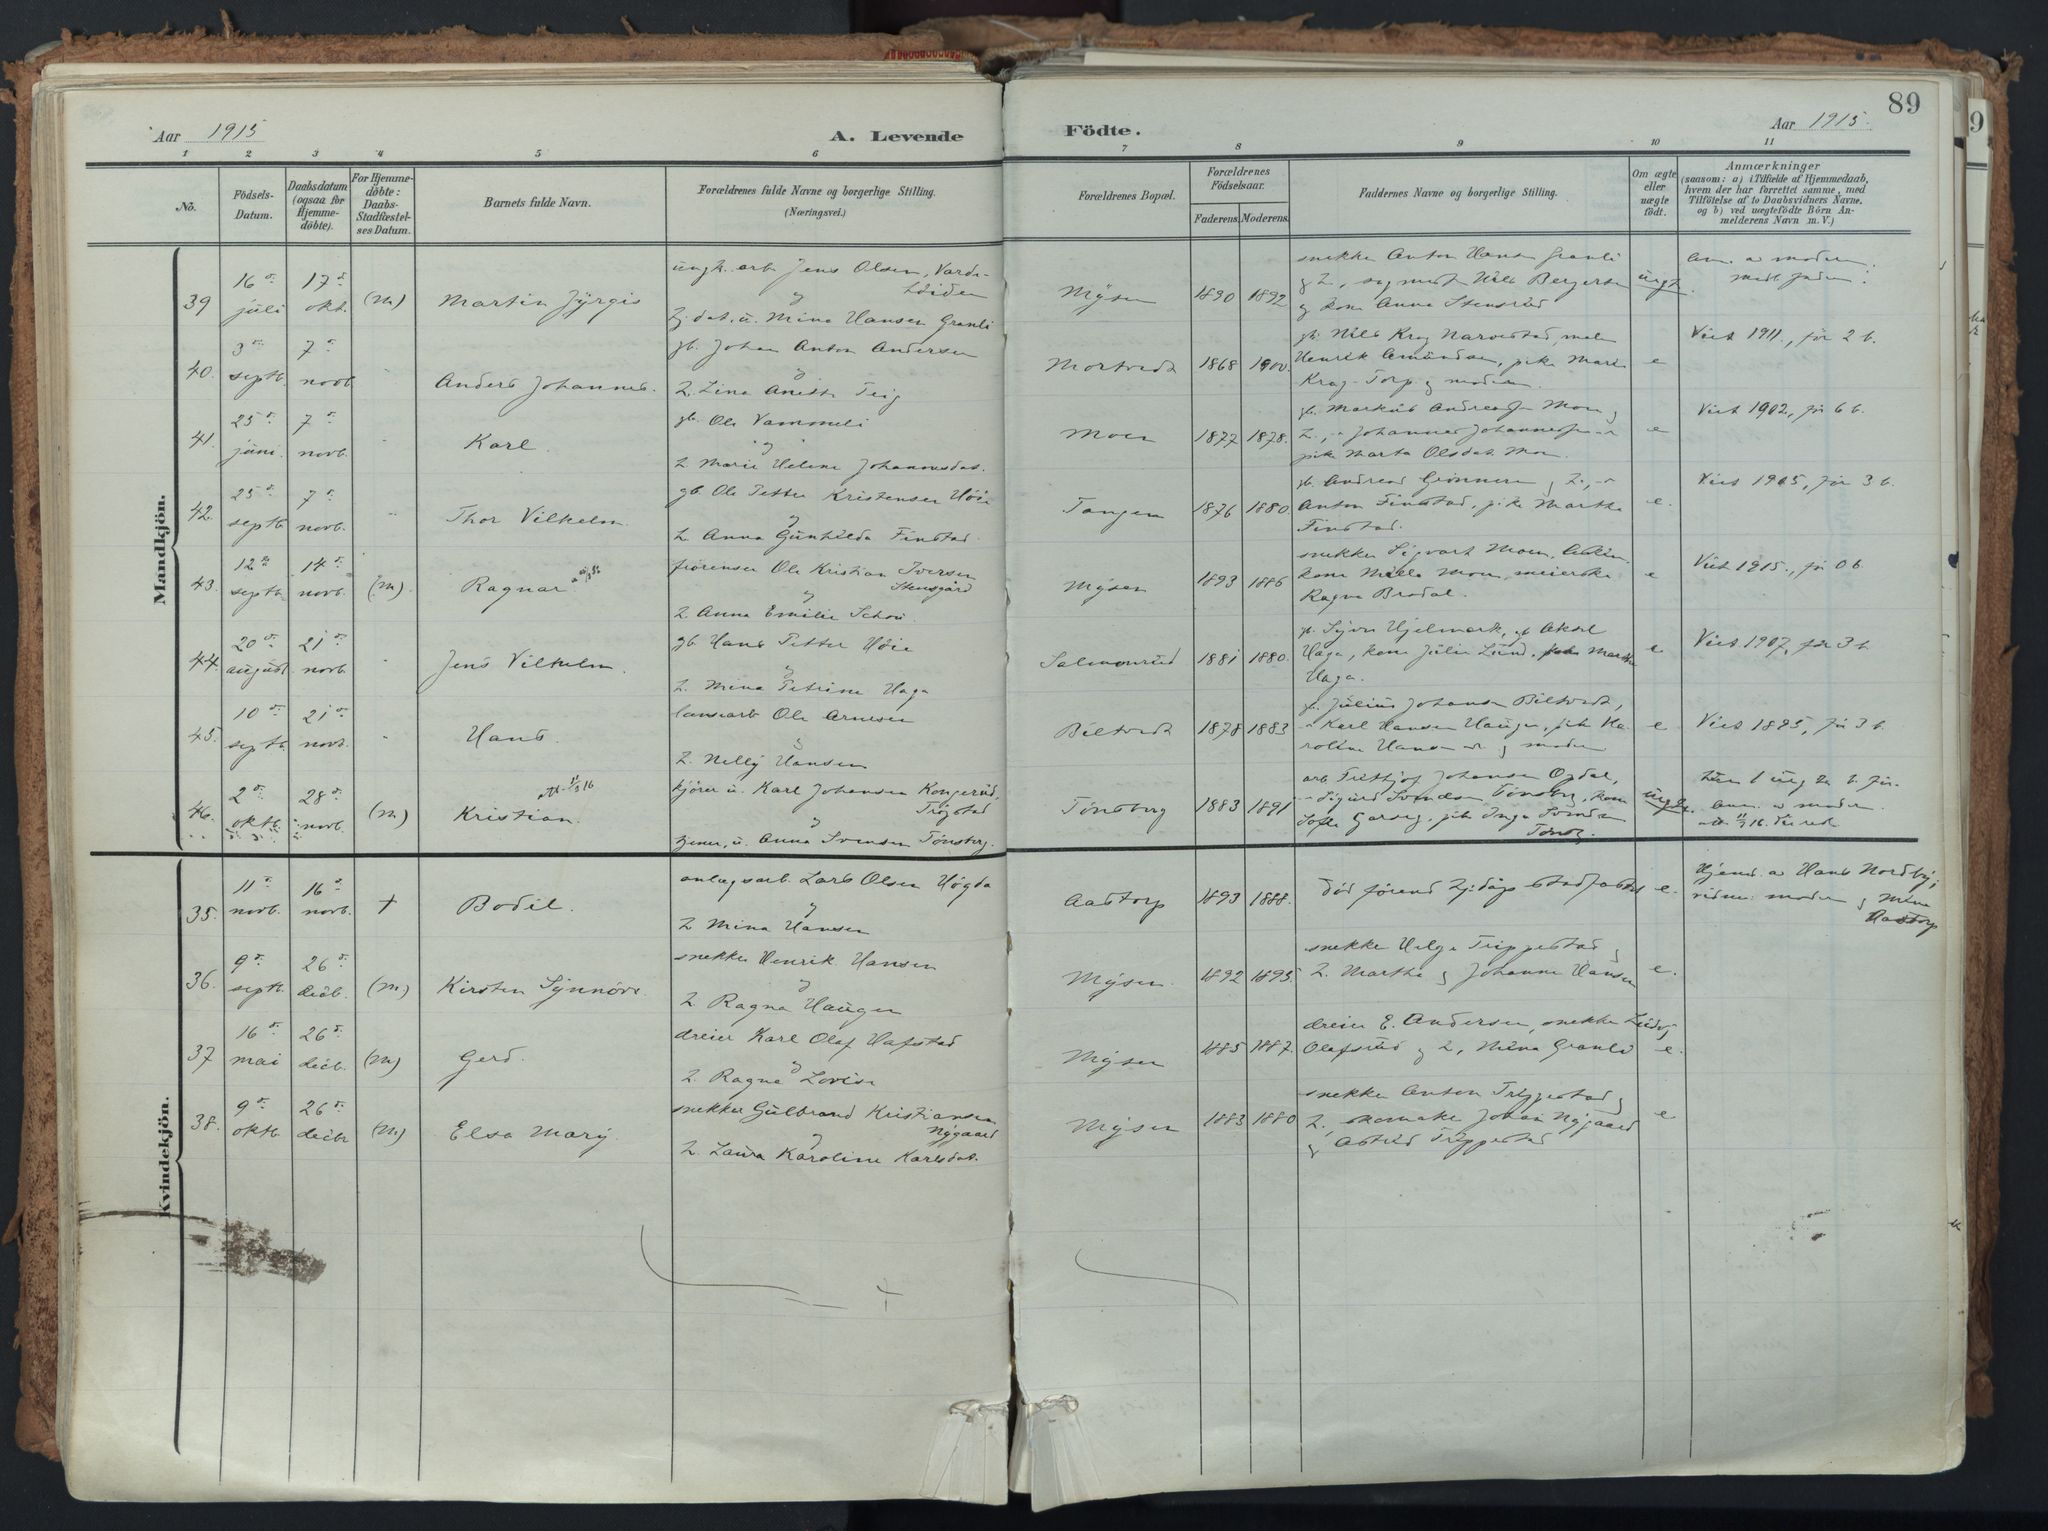 89
Aar 1915
A. Levende
Födte.
Aar 1915.
1 2 3 4 5 6 7 8 9 10 11
No.
Födsels-Datum.
Daabsdatum (ogsaa for Hjemme-döbte).
For Hjemme-döbte: Daabs-Stadfæstel-ses Datum.
Barnets fulde Navn.
Forældrenes fulde Navne og borgerlige Stilling.
(Næringsvei.)
Forældrenes Bopæl.
Forældrenes Födselsaar.
Faderens.
Moderens.
Faddernes Navne og borgerlige Stilling.
Om ægte eller uægte födt.
Anmærkninger
(saasom: a) i Tilfælde af Hjemmedaab,
hvem der har forrettet samme, med
Tilföielse af to Daabsvidners Navne,
og b) ved uægtefödte Börn An-
melderens Navn m. V.)
Mandkjön.
39 16 juli 17 okt. (M) Martin Jyrgis
ungk. arb. Jens Olsen, Varde-
& Mina Hansen Granli
Mysen 1890 1892
snekker Anton Hansen Granli
og kone Anna Stensrud
uegt.
40. 3 septb. 7 novb. Anders Johannes.
gb. Johan Anton Andersen
& Lina Anette Teig
Mortvedt 1868 1900.
gb. Nils Krog Narvestad, maler
Henrik Amundsen, pike Marie
Krog-Torp og moderen.
e
Viet 1911, før 2 b.
41. 25 juni. 7 novb. Karl.
gb. Ole Vammeli
& Marie Helene Johannesdat.
Moen 1877 1878.
gb. Markus Andreassen Moen og
Johannes Johannessen
pike Marta Olsdat. Moen.
e
Viet 1902, før 6 b.
42. 25 septb. 7 novb. Thor Vilhelm.
gb. Ole Petter Kristensen Høie
& Anna Gunhilda Finstad.
Tangen 1876 1880.
gb. Andreas Grønnern
Anton Finstad, pike Marthe
Finstad.
e.
Viet 1905, før 3 b.
43. 12 septb. 14 novb. (M). Ragnar.
Ole Kristian Iversen
Stensgård
& Anna Emilie Schou.
Mysen 1893 1886
snekker Sigvart Moen,
kone Milla Moen, meierske
Ragna Brodal.
e
Viet 1915, før 0 b.
44. 20 august. 21 novb. Jens Vilhelm.
gb. Hans Petter Høie
& Mina Petrine Haga
Salmonrud 1881 1880.
gb. Syver Hjelmark, gb. Aksel
Haga, kone Julie Lund, Marthe
Haga.
e
Viet 1907, før 3 b.
45. 10 septb. 21 novb. Hans.
Ole Arnesen
& Nelly Hansen
Biltvedt 1878 1883
gb. Julius Johansen Biltvedt,
Karl Hansen Haugen, pike Ka-
roline Hansen og moderen
e
Viet 1895, før 3 b.
46. 2 oktb. 28 novb. (M) Kristian. 11/3 16
kjører u. Karl Johansen Kongerud,
Trøgstad
tjener, u. Anna Svensen Tønsberg.
Tønsberg 1883 1891
arb Fritjof Johansen Opdal,
Sigurd Svendsen Tønsberg, kone
Sofie Garseg, pike Inga Svendsen
Tønsb.
uegte.
Kvindekjön.
35. 11 novb. 16 novb. + Bodil.
anlægsarb. Lars Olsen Høgda
& Mina Hansen
Aastorp 1893 1888.
Død førend stadfæstet
e.
Hjemd. a Hans Nordby;
vidner: moderen og Mina
Aastorp
36. 9 septb. 26 decb. (M) Kirsten Synnöve.
snekker Henrik Hansen
& Ragna Haugen
Mysen. 1892 1895.
snekker Helge Trippestad og
Marthe og Johanne Hansen
e.
37 16 mai 26 decb. (M) Gerd.
dreier Karl Olaf Hafstad
& Ragna Lovise
Mysen 1885 1887.
dreier E. Andersen, snekker Ludvig
Olafsrud og Mina Granli
e.
38. 9 oktb. 26 decbr (M) Elsa Mary.
snekker Gulbrand Kristiansen
Nygaard
& Laura Karoline Karlsdat.
Mysen 1883 1880
snekker Anton Trippestad og
skomaker Johan Nygaard
og Astrid Trippestad
e